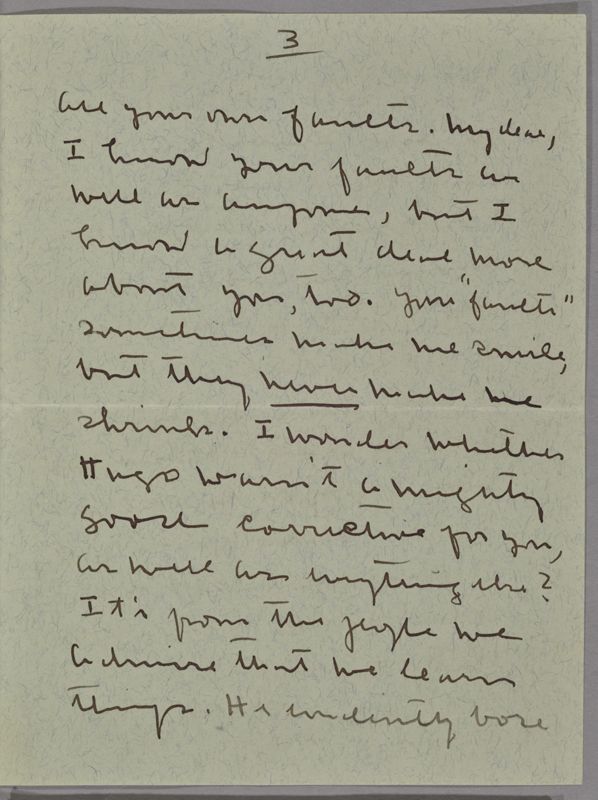 3
are your own faults. My dear,
I know your faults as
well as anyone, but I
know a great deal more
about you, too. Your "faults"
sometimes make me smile,
but they never make me
shrink. I wonder whether
Hugo wasn't a mighty
good corrective for you,
as well as anything else?
It's from the people we
admire that we learn
things. He evidently bore